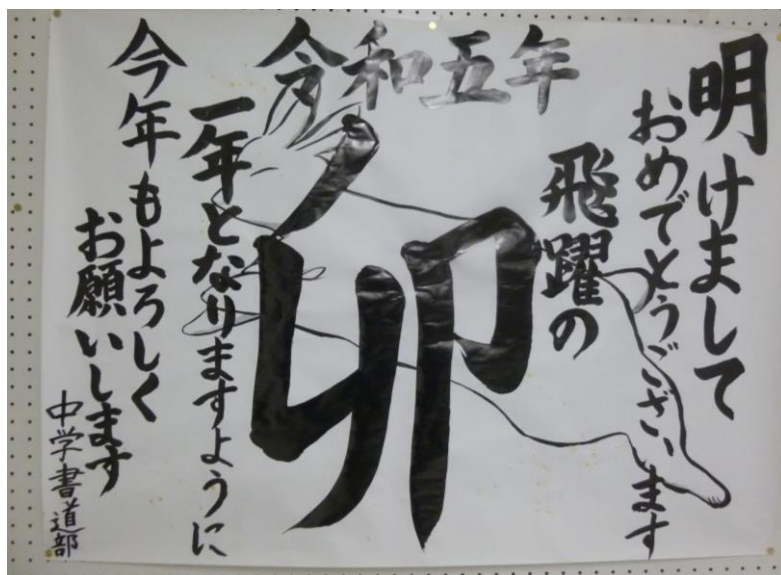 令和五年
明けまして
おめでとうございます
飛躍の
卯
一年となりますように
今年もよろしく
お願いします
中学書道部